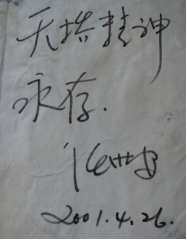 天塔精神
永存.
2001.4.26.